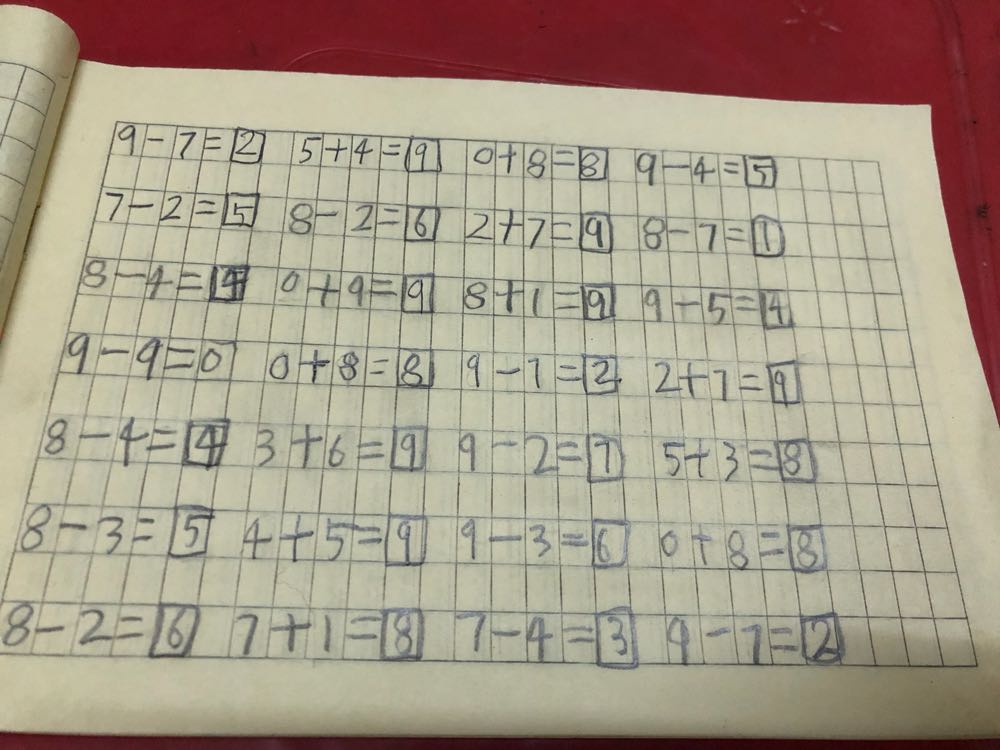 9-7=2 5+4=9 0+8=8 9-4=5
7-2=5 8-2=6 2+7=9 8-7=1
8-4=4 0+9=9 8+1=9 9-5=4
9-9=0 0+8=8 9-7=2 2+7=9
8-4=4 3+6=9 9-2=7 5+3=8
8-3=5 4+5=9 9-3=6 0+8=8
8-2=6 7+1=8 7-4=3 9-7=2